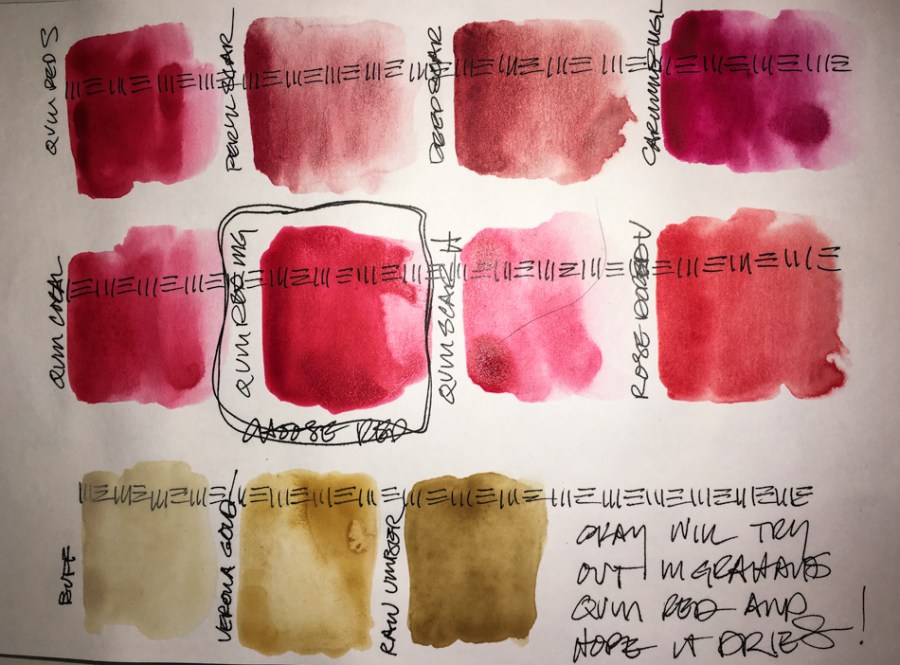 QUIN RED S
PERYL SCAR
DEEP SCAR
CARMINE MGL
QUIN CORAL
QUIN RED MG
QUIN SCAR H
ROSE
CHOOSE RED
BUFF
VERONA GOLD
RAW UMBER
OKAY WILL TRY
OUT M GRAHAMS
QUIN RED AND
HOPE IT DRIES!